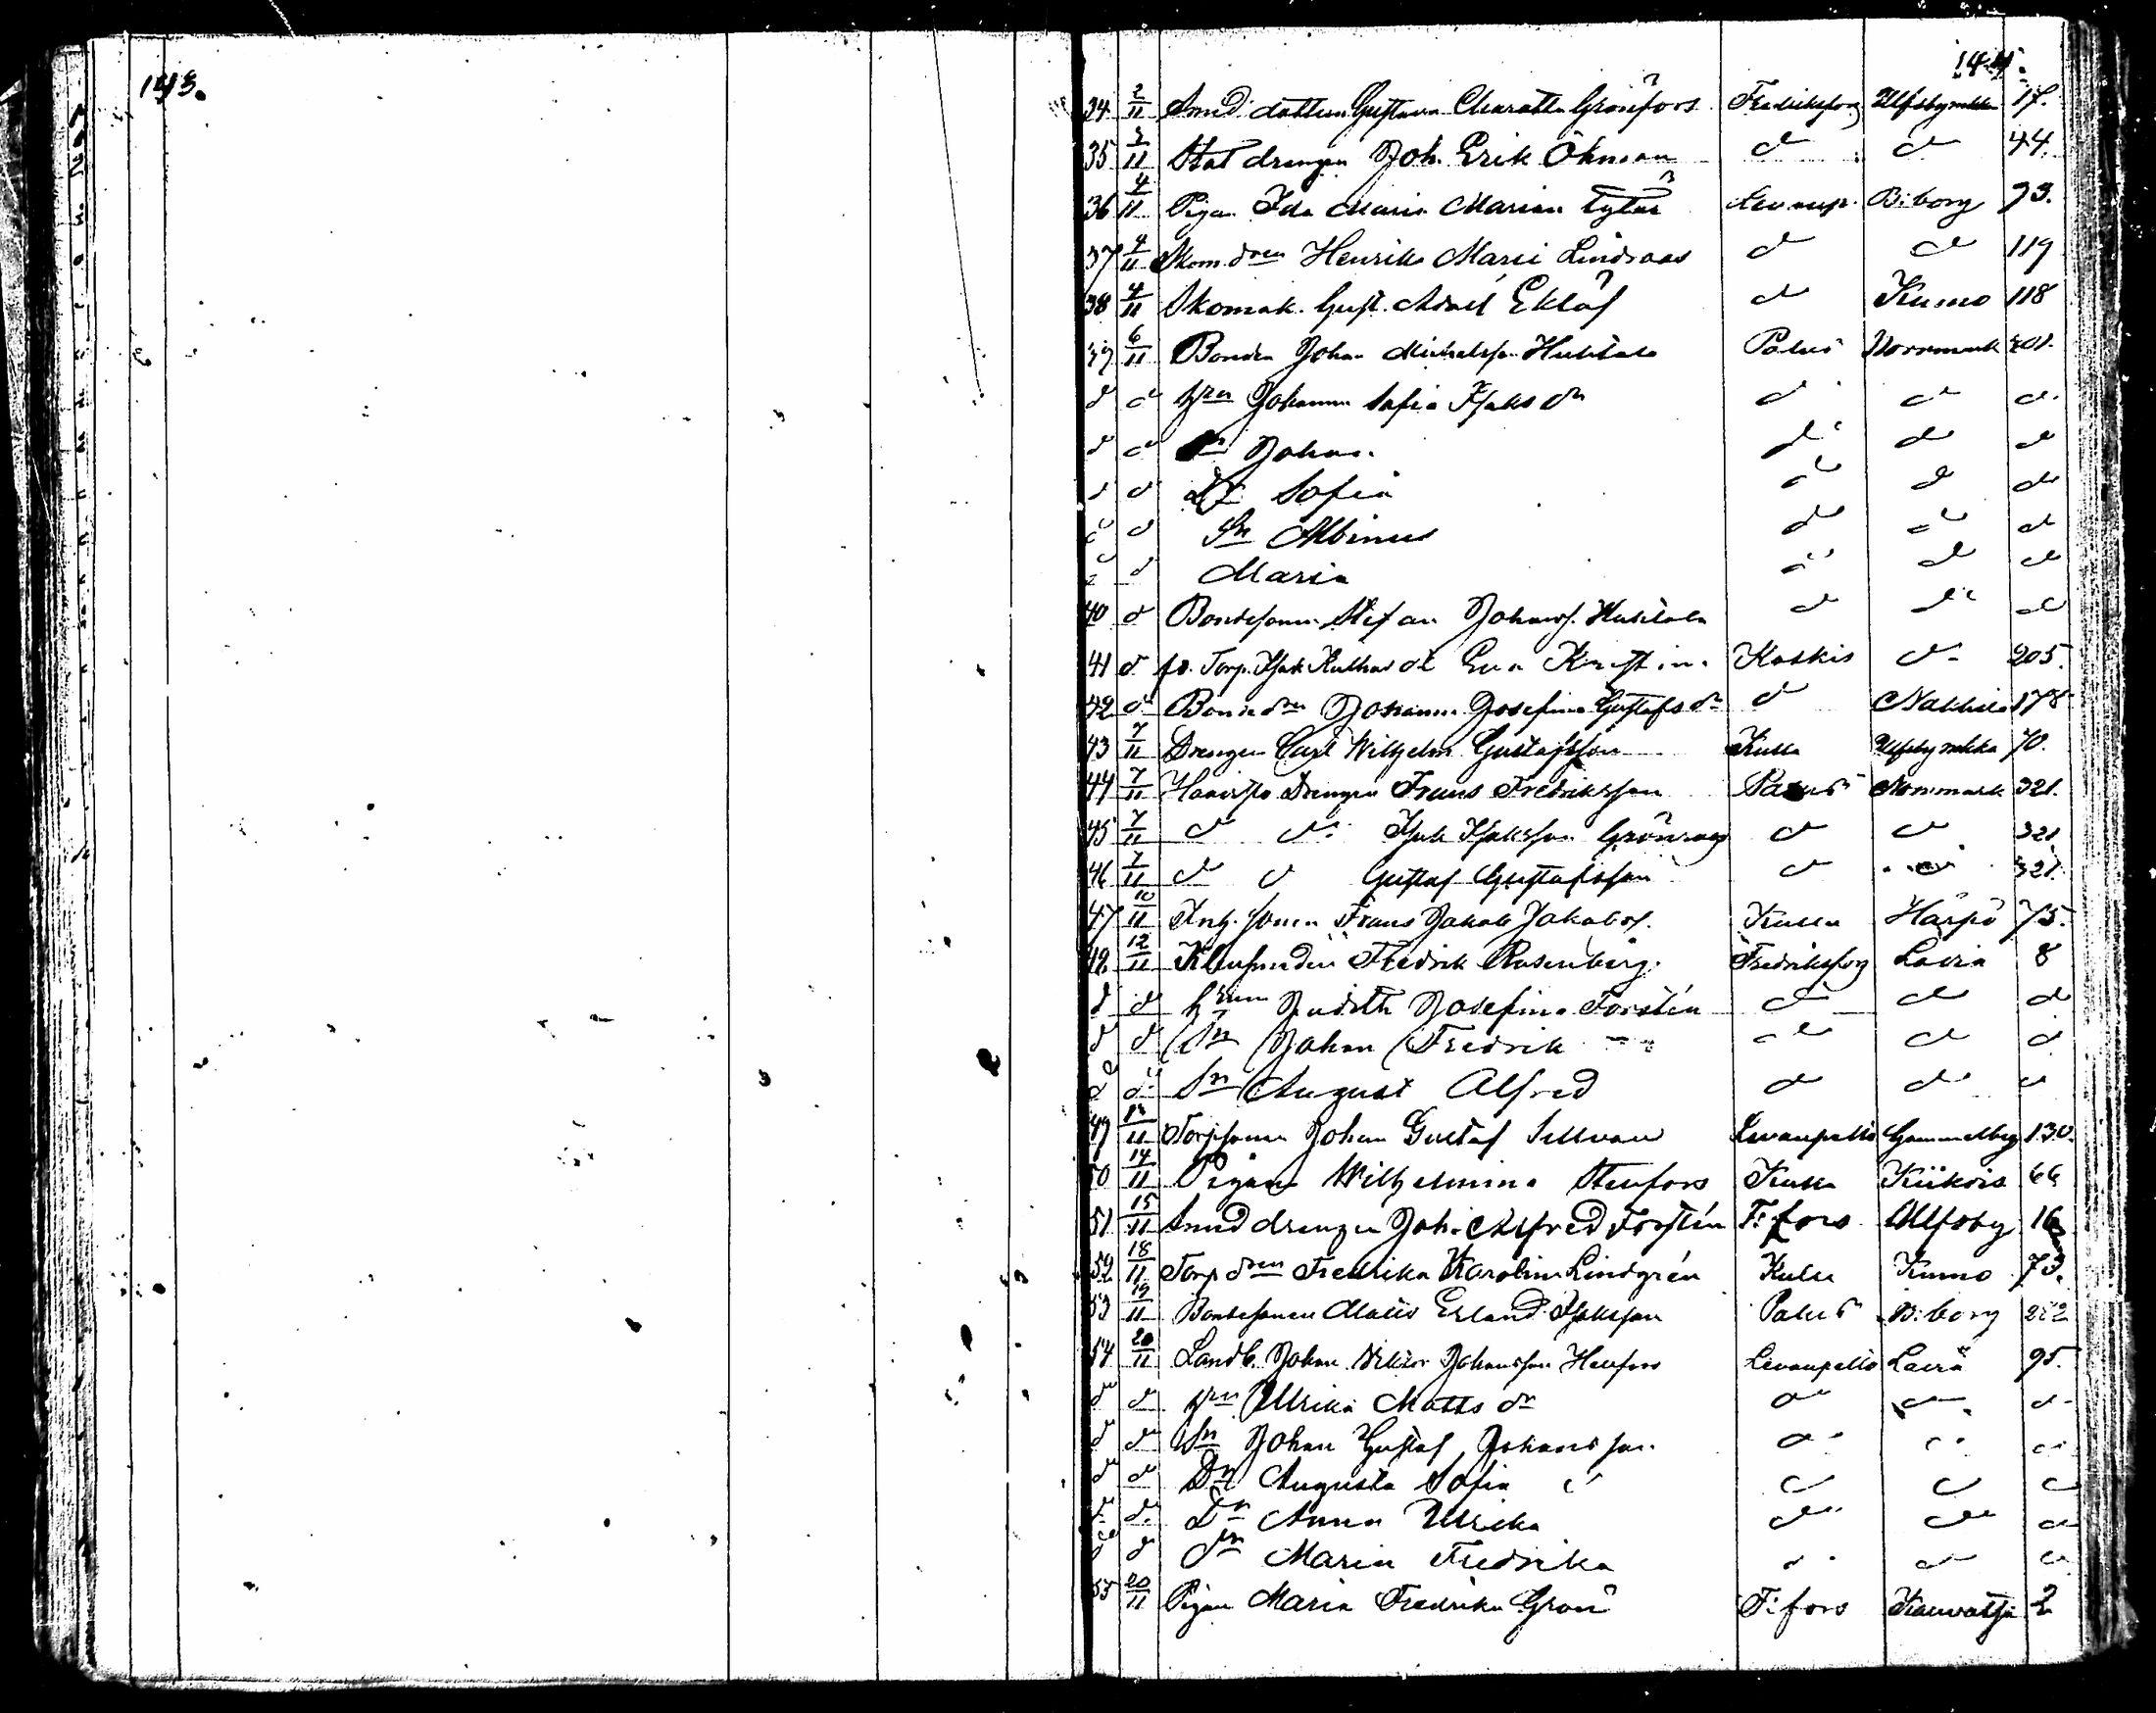 143.
144.
34 2/11 Smed dottern Gustava Charatta Grönfors Fredriksfors Ulfsby mlska 17.
35 3/11 Stat drengen Joh. Erik Öhman d d 44.
36 4/11 Pigan Ida Maria Marian tytar Levanp. B:borg 93.
37 4/11 Skom. dren Henrika Maria Lindroos d d 119
38 4/11 Skomak. Gust. Adolf Eklöf d Kumo 118
39 6/11 Bonden Johan Michelsson Huhtala Palus Norrmark 301.
d d hrn Johanna Sofia Isaks dr d d d
d d Sn Johan d d d
d d Dr Sofia d d d
d d Sn Albinus d d d
d d Maria d d d
40 d Bondesonen Stefan Johanss. Huhtala d d d
41 d fd. Torp. Isak Kulhas dr Eva Kristina Koskis d 205.
42 d Bonde drn Johanna Josefina Gustafs dr d Nakkila 178
43 7/11 Drengen Carl Wilhelm Gustafsson Kulla Ulfsby mlska 70.
44 7/11 Drengen Frans Fredriksson Palus Norrmark 321.
45 7/11 d d Isak Isaksson Grönroos d d 321
46 7/11 d d Gustaf Gustafsson d d 321.
47 10/11 Inh. sonen Frans Jakob Jakobss. Kulla Harjo 75.
48 12/11 Klensmeden Fredrik Rosenberg. Fredriksfors Lavia 8
d d hrun Judith Josefina Forstén d d d
d d Sn Johan Fredrik d d d
d d Sn August Alfred d d d
49 11 Torpsonen Johan Gustaf Sillman Levanpelto Gammelby 130.
50 14/11 Pigan Wilhelmina Stenfors Kulla Kiikois 66
51 15/11 Smed drengen Joh. Alfred Forstén F:fors Ulfsby 16
52 18/11 Torp dren Fredrika Karolina Lindgrén Kulla Kumo 73.
53 19/11 Bondesonen Matts Erland Isaksson Palus B:borg 252
54 20/11 Landb. Johan Viktor Johansson Henfors Levanpelto Lavia 95.
d d hrn Ulrika Matts dr d d d
d d Sn Johan Gustaf Johansson d d d
d d Dr Augusta Sofia d d d d
d d Dr Anna Ulrika d d d
d d dr Maria Fredrika d d d
55 20/11 Pigan Maria Fredrika Grön F:fors Kauvatsa 2